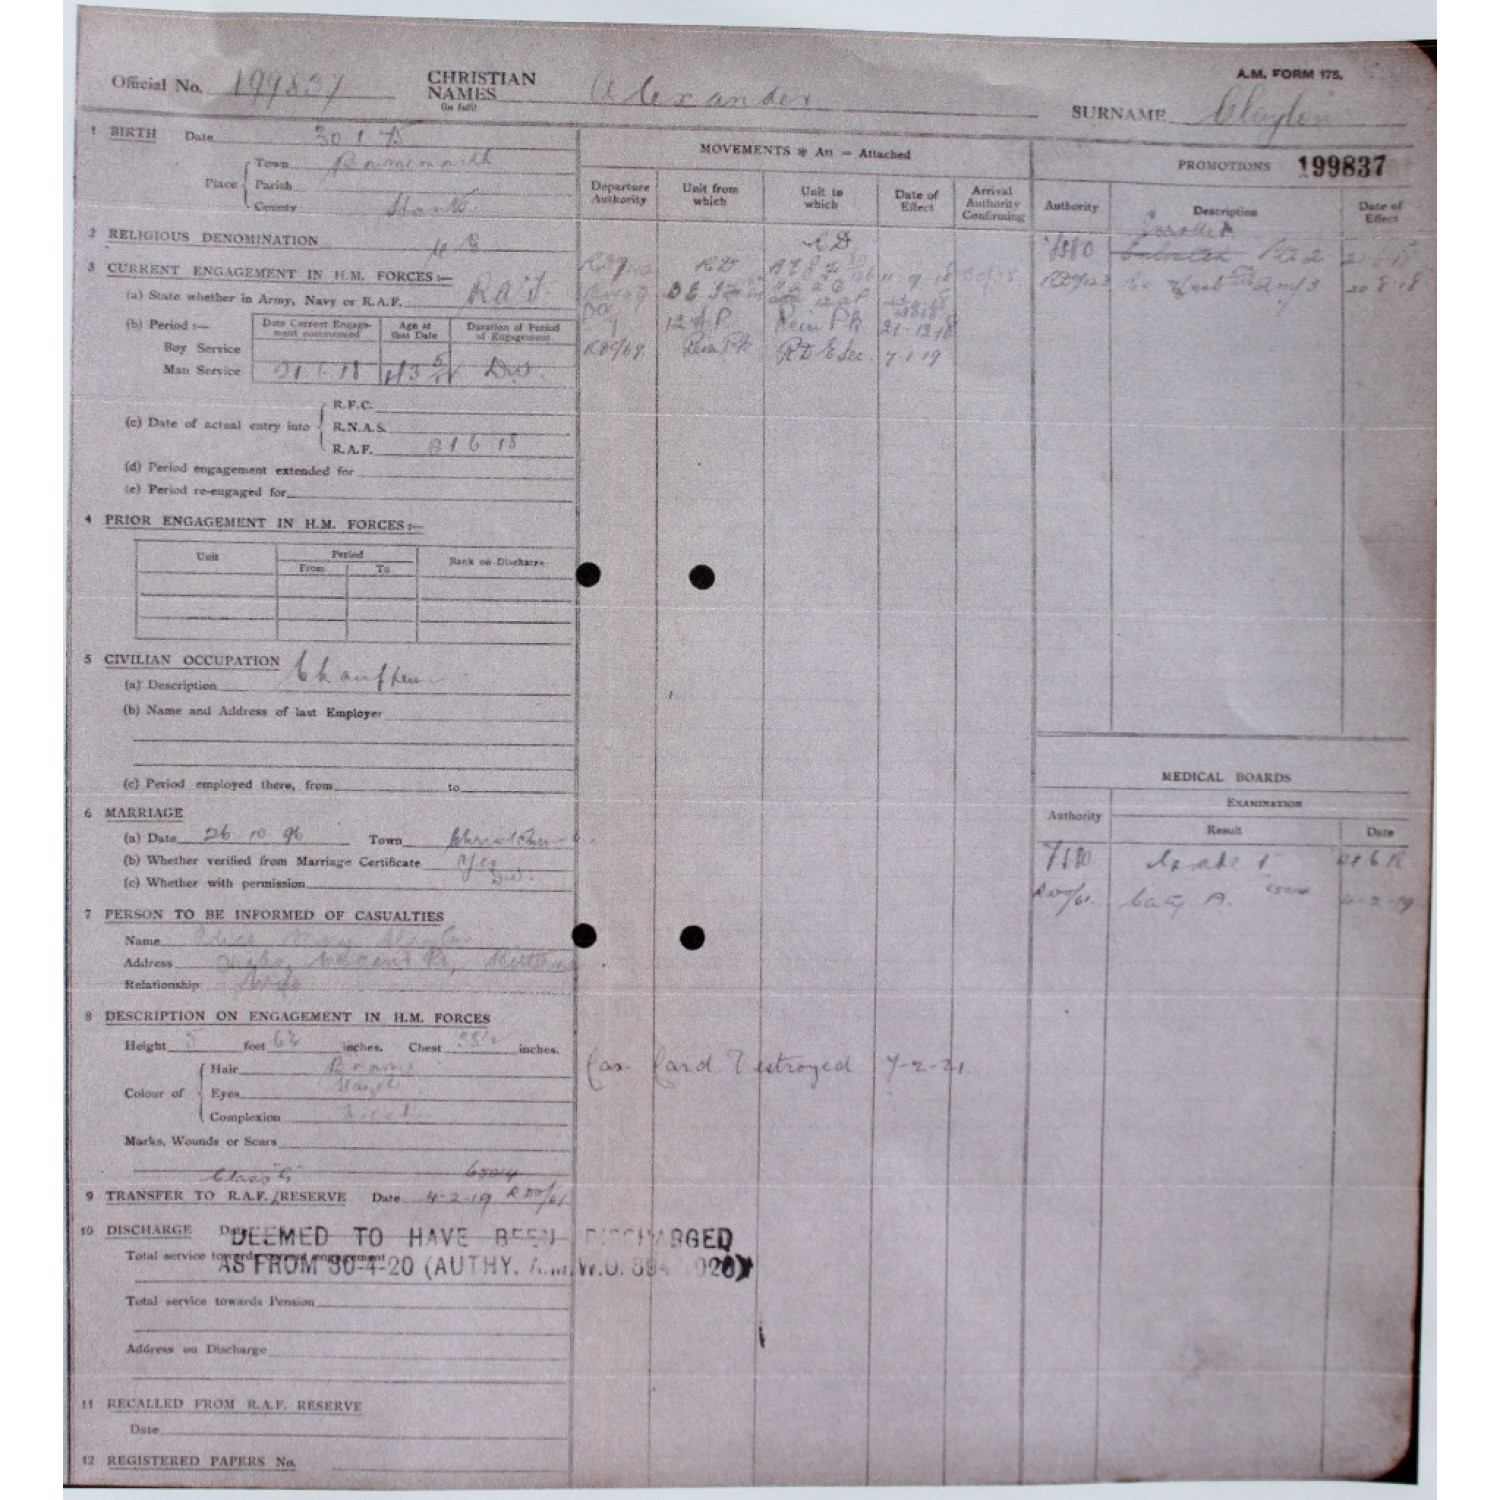 A.M. FORM 175.
Official No. 199837 CHRISTIAN NAMES (in full) Alexander SURNAME Clayton
1 BIRTH Date 30.1.75
Place Town Bournemouth
Parish
County Hants
2 RELIGIOUS DENOMINATION
3 CURRENT ENGAGEMENT IN H.M. FORCES:—
(a) State whether in Army, Navy or R.A.F. RAF
(b) Period:—
Date Current Engagement commenced Age at that Date Duration of Period of Engagement
Boy Service
Man Service 43 DW.
(c) Date of actual entry into R.F.C.
R.N.A.S.
R.A.F. 21 6 18
(d) Period engagement extended for
(e) Period re-engaged for
4 PRIOR ENGAGEMENT IN H.M. FORCES:—
Unit Period From To Rank on Discharge
5 CIVILIAN OCCUPATION
(a) Description Chauffeur
(b) Name and Address of last Employer
(c) Period employed there, from to
6 MARRIAGE
(a) Date 26 10 96 Town Christchurch
(b) Whether verified from Marriage Certificate Yes
(c) Whether with permission
7 PERSON TO BE INFORMED OF CASUALTIES
Name Alice Mary Clayton
Address
Relationship Wife
8 DESCRIPTION ON ENGAGEMENT IN H.M. FORCES
Height 5 feet inches. Chest inches.
Colour of Hair Brown
Eyes Hazel
Complexion Fresh
Marks, Wounds or Scars
Class G
9 TRANSFER TO R.A.F./RESERVE Date 4-2-19 RDO/61
10 DISCHARGE Date
DEEMED TO HAVE BEEN DISCHARGED
Total service towards current engagement
AS FROM 30-4-20 (AUTHY. A.M.W.O.
Total service towards Pension
Address on Discharge
11 RECALLED FROM R.A.F. RESERVE
Date
12 REGISTERED PAPERS No.
MOVEMENTS * Att — Attached
Departure Authority Unit from which Unit to which Date of Effect Arrival Authority Confirming
RD 11 9 18
12 A P Rein Pk 21-12-18
Rein Pk RD E Sec 7 1 19
Cas. Card Destroyed 7-2-21
PROMOTIONS 199837
Authority Description Date of Effect
Enrolled
20 8 18
MEDICAL BOARDS
Authority EXAMINATION
Result Date
Grade I 21 6 18
RDO/61. Caty A. 4-2-19